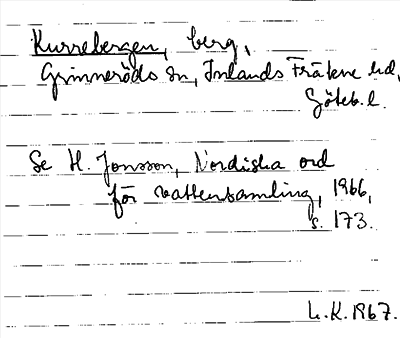 Kurrebergen, berg,
Grinneröds sn, Inlands Fräkne hd,
Göteb. l.
Se H. Jonsson, Nordiska ord
för vattensamling, 1966,
s. 173.
L.K. 1967.